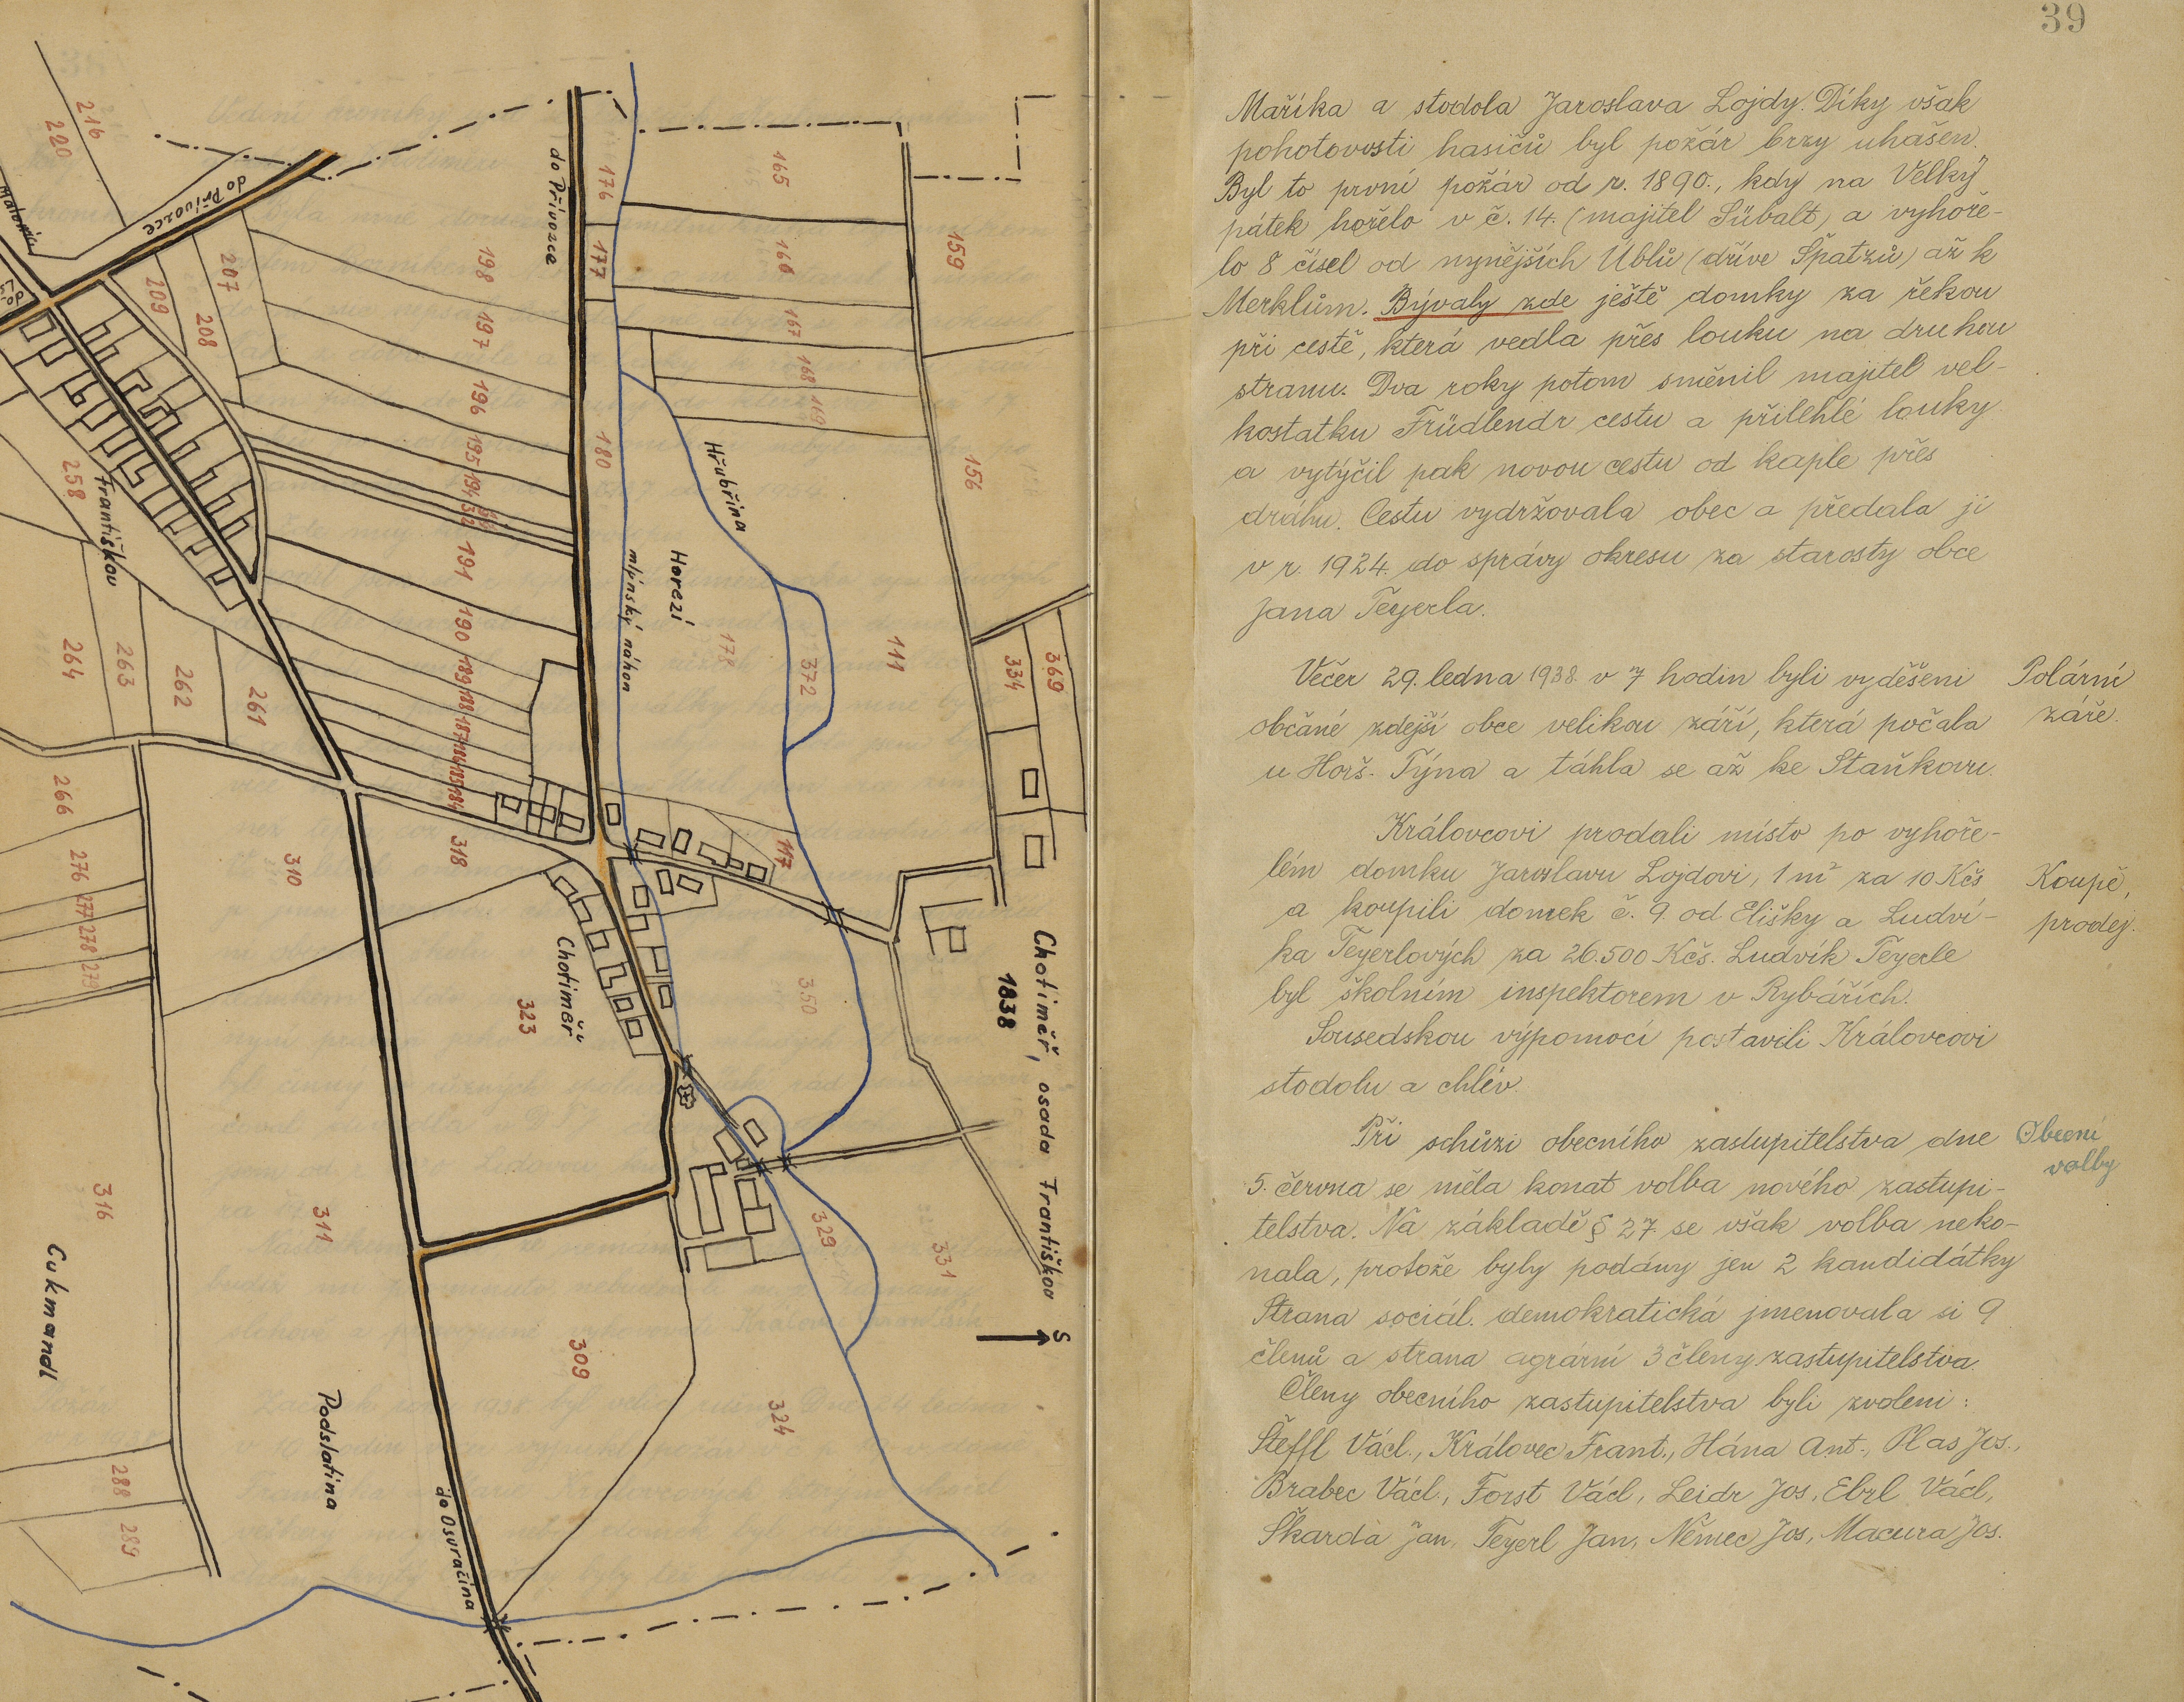 216
220
do Přívozce
do Přívozce
176
165
159
177
166
207
209
208
198
197
167
168
169
196
180
195
194
156
Hřubřina
258
Františkov
191
Horezí
mlýnský náhon
190
178
372
111
334
369
264
263
262
261
189
188
187
186
185
184
266
276
277
278
279
310
318
117
Chotiměř
323
350
Chotiměř, osada Františkov
1838
S
316
311
329
331
Cukmandl
309
324
Podslatina
288
289
do Osvračína
39
Maříka a stodola Jaroslava Lojdy. Díky však
pohotovosti hasičů byl požár brzy uhašen.
Byl to první požár od r. 1890., kdy na Velký
pátek hořelo v č. 14. (majitel Sübalt) a vyhoře-
lo 8 čísel od nynějších Üblů (dříve Špatzů) až k
Merklům. Bývaly zde ještě domky za řekou
při cestě, která vedla přes louku na druhou
stranu. Dva roky potom směnil majitel vel-
kostatku Früdlendr cestu a přilehlé louky
a vytýčil pak novou cestu od kaple přes
dráhu. Cestu vydržovala obec a předala ji
v r. 1924. do správy okresu za starosty obce
Jana Teyerla.
Večer 29. ledna 1938 v 7 hodin byli vyděšeni
Polární
občané zdejší obce velikou září, která počala
záře.
u Horš. Týna a táhla se až ke Staňkovu.
Královcovi prodali místo po vyhoře-
lém domku Jaroslavu Lojdovi, 1 m² za 10 Kčs
Koupě,
a koupili domek č. 9. od Elišky a Ludví-
prodej.
ka Teyerlových za 26.500 Kčs. Ludvík Teyerle
byl školním inspektorem v Rybářích.
Sousedskou výpomocí postavili Královcovi
stodolu a chlév.
Při schůzi obecního zastupitelstva dne
Obecní
volby
5. června se měla konat volba nového zastupi-
telstva. Na základě § 27. se však volba neko-
nala, protože byly podány jen 2 kandidátky
Strana sociál. demokratická jmenovala si 9
členů a strana agrární 3 členy zastupitelstva.
Členy obecního zastupitelstva byli zvoleni:
Šteffl Václ., Královec Frant., Hána Ant., Plas Jos.,
Brabec Václ., Forst Václ, Leidr Jos, Ebrl Václ,
Škarda Jan, Teyerl Jan, Němec Jos, Macura Jos.